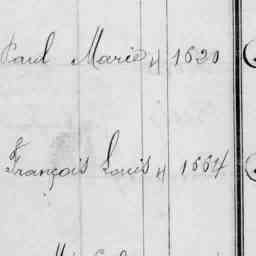 Paul Marie " 1620
François Louis " 1664